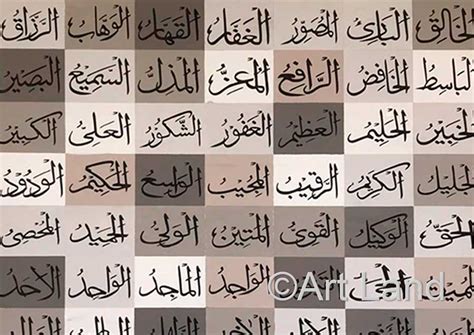 الخالق البارئ المصور الغفار القهار الوهاب الرزاق
الباسط الخافض الرافع المعز المذل السميع البصير
الخبير الحليم العظيم الغفور الشكور العلي الكبير
الجليل الكريم الرقيب المجيب الواسع الحكيم الودود
الحق الوكيل القوي المتين الولي الحميد المحصي
الواجد الماجد الواحد الاحد
©Art Land